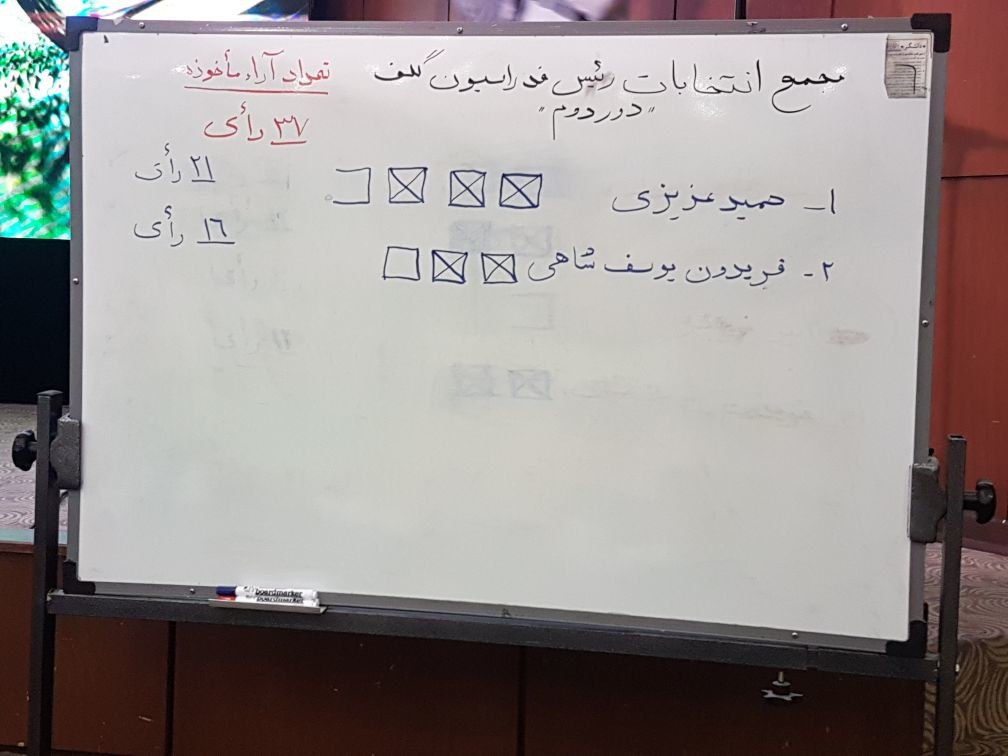 مجمع انتخابات رئیس فدراسیون گلف
"دور دوم"
تعداد آراء مأخوذه
۳۷ رأی
۱ـ حمید عزیزی
۲۱ رأی
۲ـ فریدون یوسف شاهی
۱۶ رأی
boardmarker
boardmarker